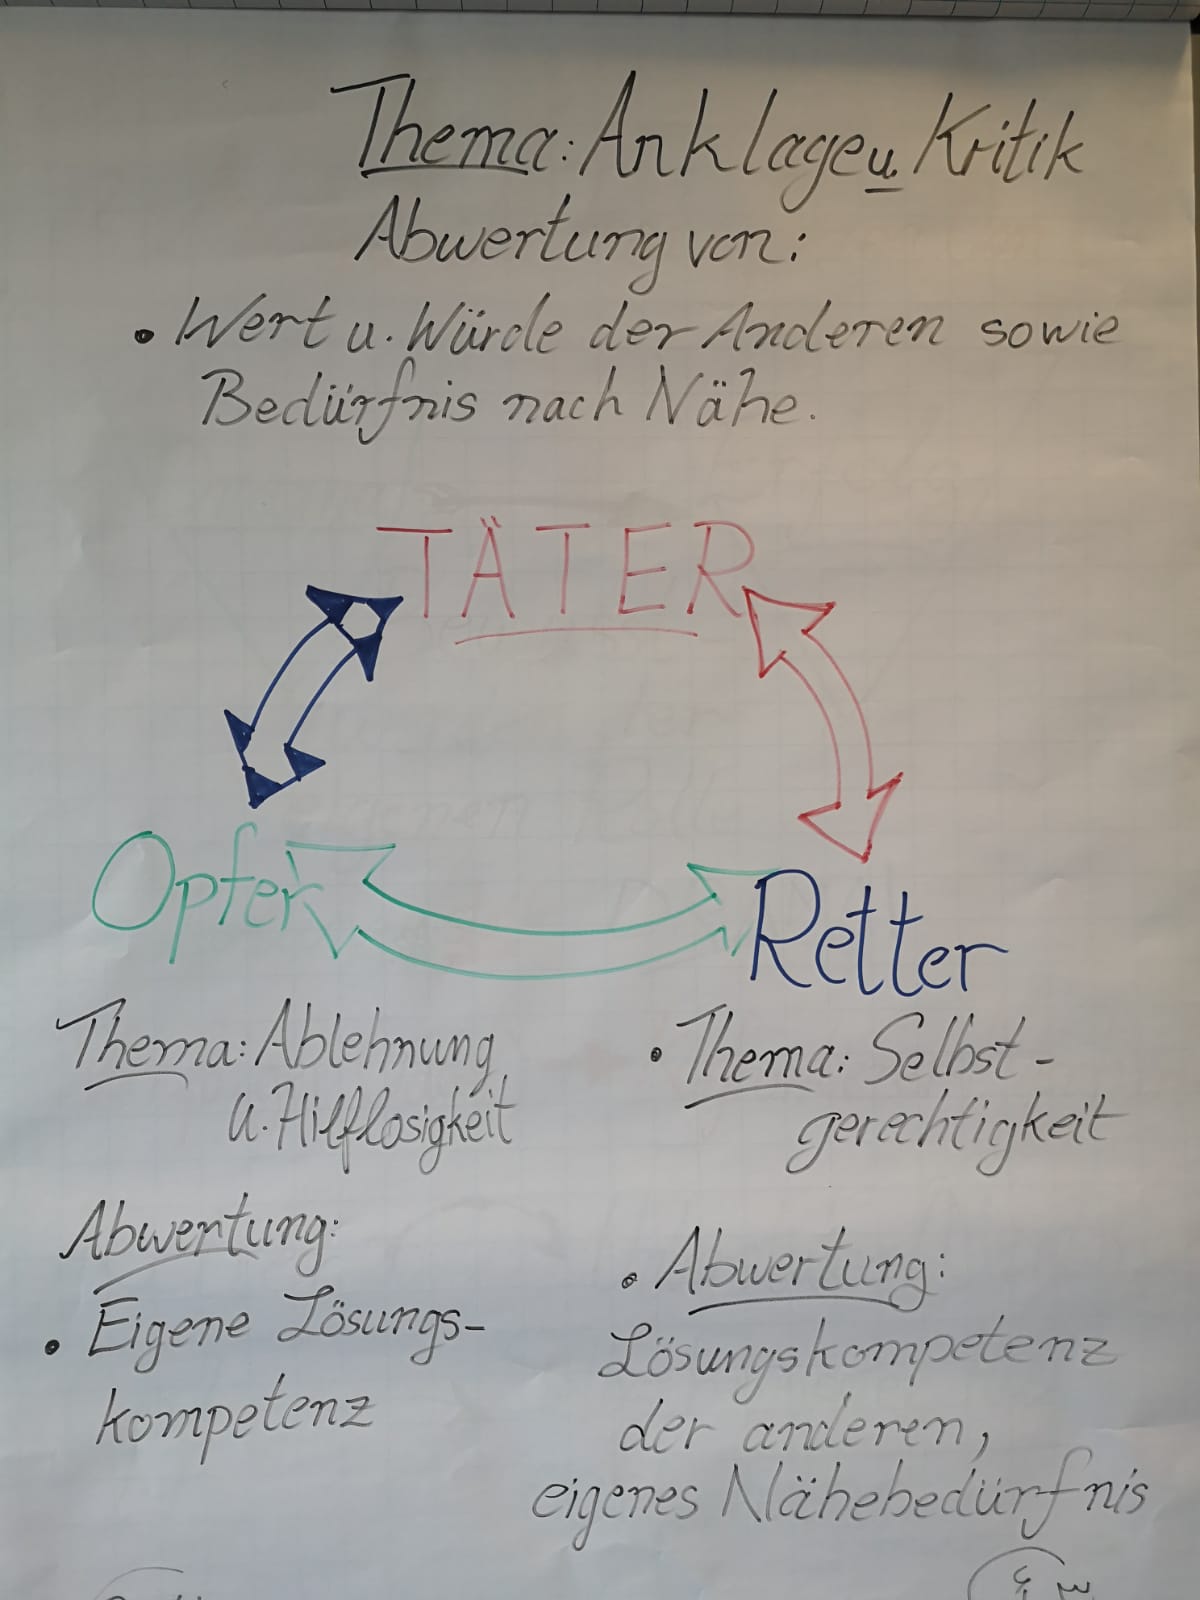 Thema: Anklage u. Kritik
Abwertung von:
• Wert u. Würde der Anderen sowie
Bedürfnis nach Nähe.
TÄTER
Opfer
Retter
Thema: Ablehnung
u. Hilflosigkeit
Abwertung:
• Eigene Lösungs-
kompetenz
• Thema: Selbst-
gerechtigkeit
• Abwertung:
Lösungskompetenz
der anderen,
eigenes Nähebedürfnis